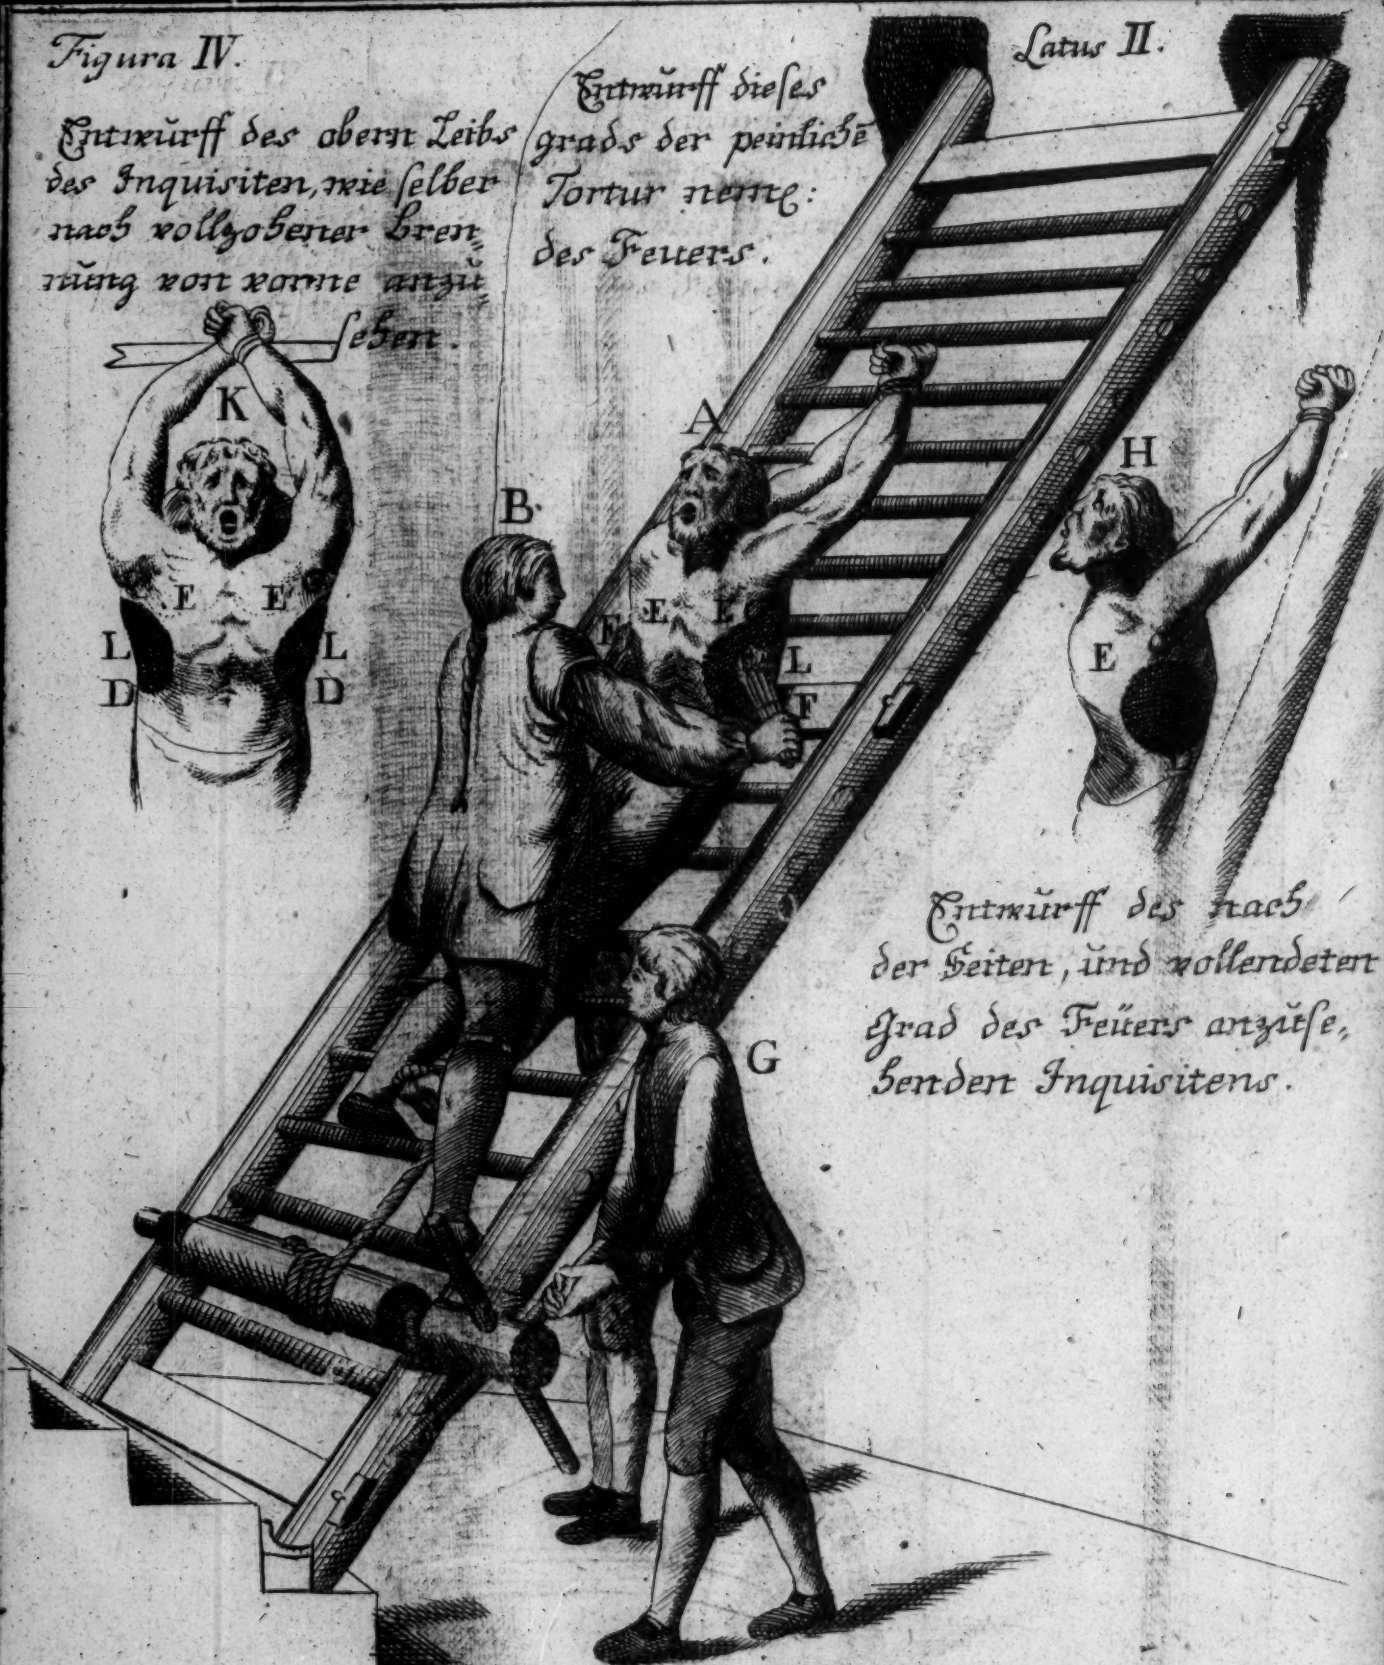 Figura IV.
Latus II.
Entwŭrff des obern Leibs
des Inquisiten, wie selber
nach vollzohener Bren„
nŭng von vorne anzŭ„
sehen.
Entwŭrff dieses
grads der peinlichē
Tortur neml:
des Feuers.
K
E E
L L
D D
A
B.
E E
F
L
F
H
E
G
Entwŭrff des nach
der Seiten, ŭnd vollendeten
Grad des Feüers anzŭse„
henden Inquisitens.